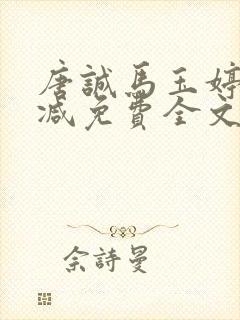 唐誠馬玉婷
減免費全文
佘詩曼